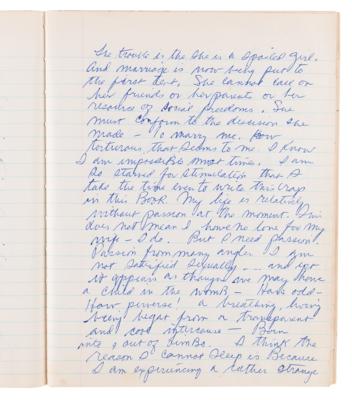 The trouble is the she is a spoiled girl.
And marriage is now being put to
the first test. She cannot call on
her friends or her parents or her
resource of social freedoms. She
must conform to the decision she
made – to marry me. How
torturous, that seems to me. I know
I am impossible most times. I am
so starved for stimulation that I
take the time even to write this crap
in this Book. My life is relatively
without passion at the moment. This
does not mean I have no love for my
wife – I do. But I need passion.
Passion from many angles. I am
not satisfied sexually – and yet
it appears as though we may have
a child in the womb – How odd –
How perverse! a breathing living
being begat from a transparent
and cool intercourse – Born
into & out of limbo. I think the
reason I cannot sleep is Because
I am experiencing a rather strange